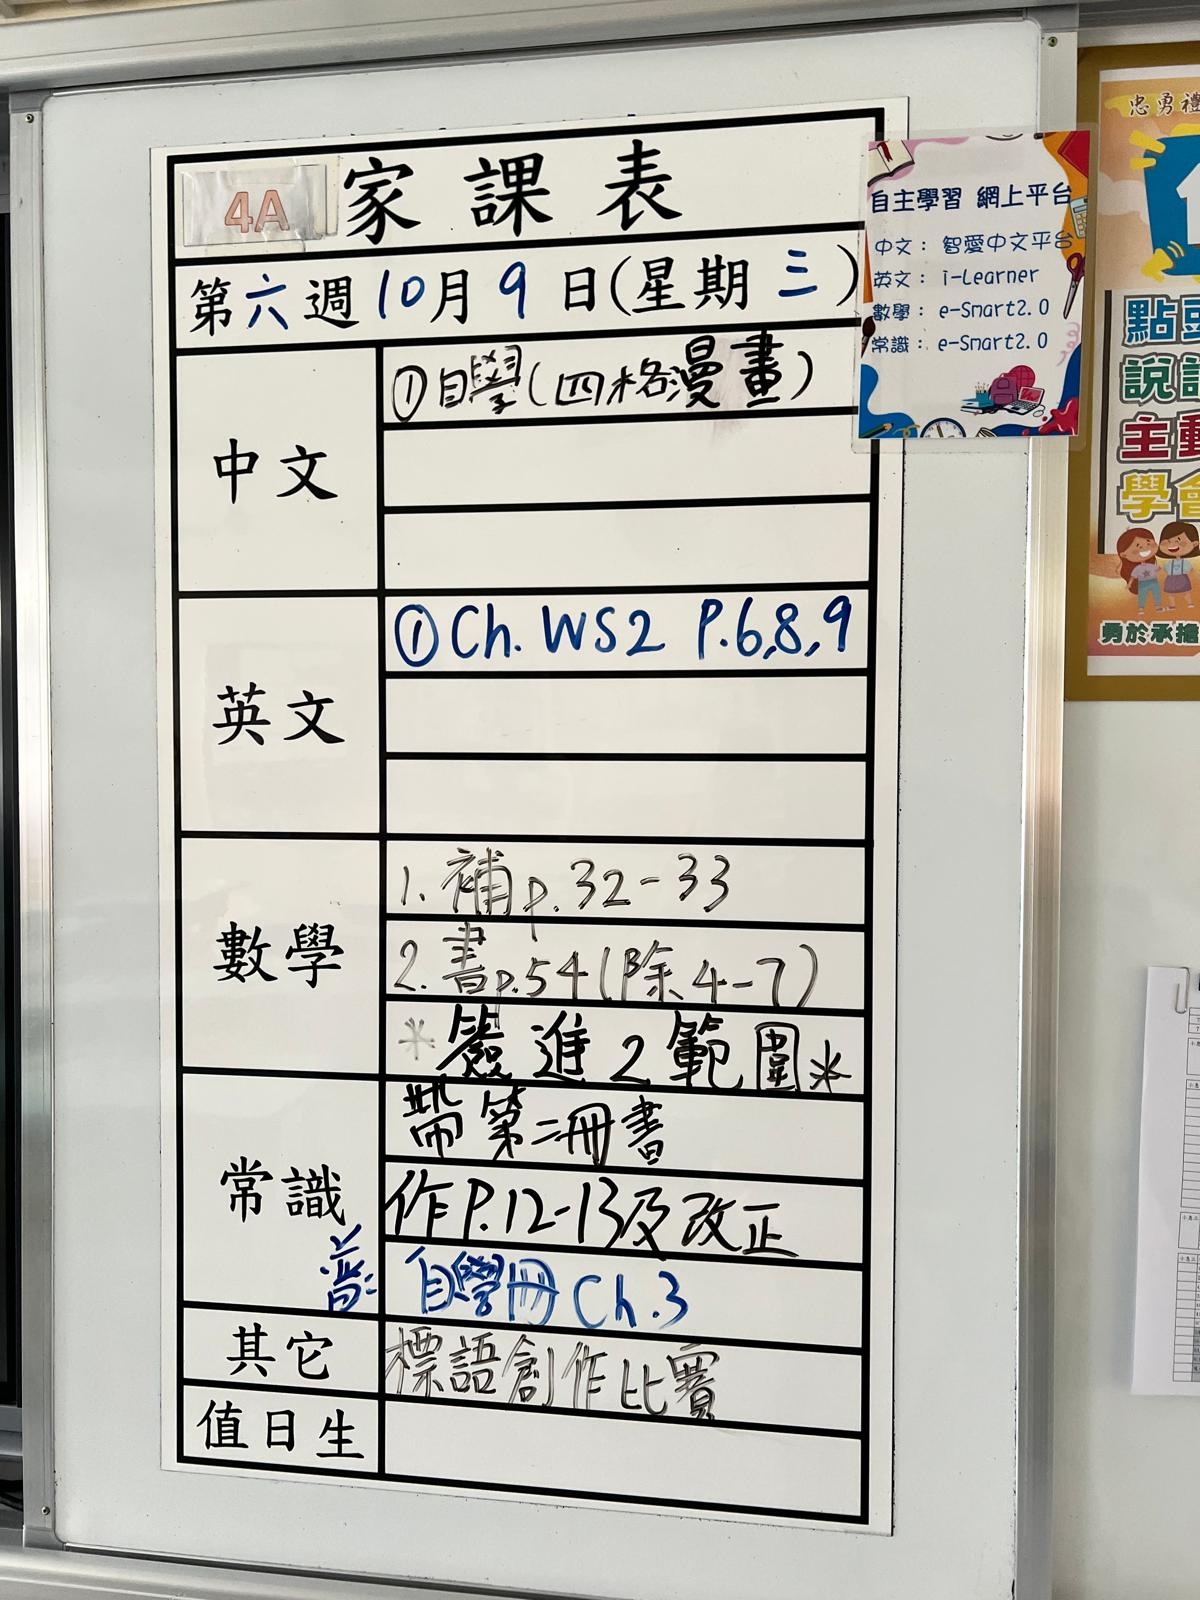 4A 家課表
第六週10月9日(星期三)
中文
①自學(四格漫畫)
英文
①Ch. WS2 P.6,8,9
數學
1. 補p.32-33
2. 書p.54(除4-7)
*簽進2範圍*
常識
帶第二冊書
作P.12-13及改正
普: 自學冊Ch.3
其它
標語創作比賽
值日生
自主學習 網上平台
中文：智愛中文平台
英文：i-Learner
數學：e-Smart2.0
常識：e-Smart2.0
忠勇禮
點頭
說
主動
學會
勇於承擔